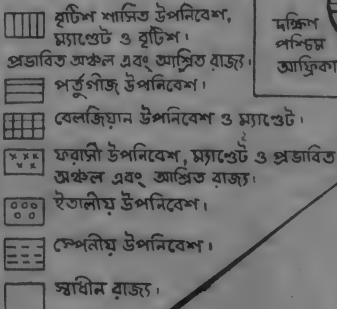 বৃটিশ শাসিত উপনিবেশ,
ম্যাণ্ডেট ও বৃটিশ।
প্রভাবিত অঞ্চল এবং আশ্রিত রাজ্য।
পর্তুগীজ উপনিবেশ।
বেলজিয়ান উপনিবেশ ও ম্যাণ্ডেট।
ফরাসী উপনিবেশ, ম্যাণ্ডেট ও প্রভাবিত
অঞ্চল এবং আশ্রিত রাজ্য।
ইতালীয় উপনিবেশ।
স্পেনীয় উপনিবেশ।
স্বাধীন রাজ্য।
দক্ষিণ
পশ্চিম
আফ্রিকা